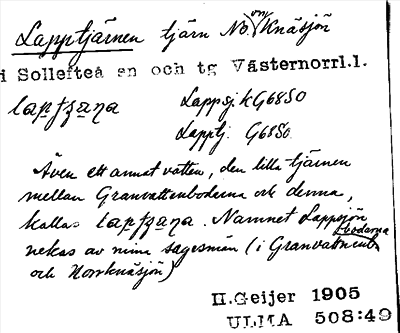 Lapptjärnen tjärn No. om Knäsjön
i Sollefteå sn och tg Västernorrl.l.
lapʃʒana Lappsj. KG68SO
Lapptj. G68SO.
Även ett annat vatten, den lilla tjärnen
mellan Granvattenboderna och denna,
kallas lapʃʒana. Namnet Lappsjön
nekas av mina sagesmän (i Granvattenboderna
och Norrknäsjön)
H.Geijer 1905
ULMA 508:49